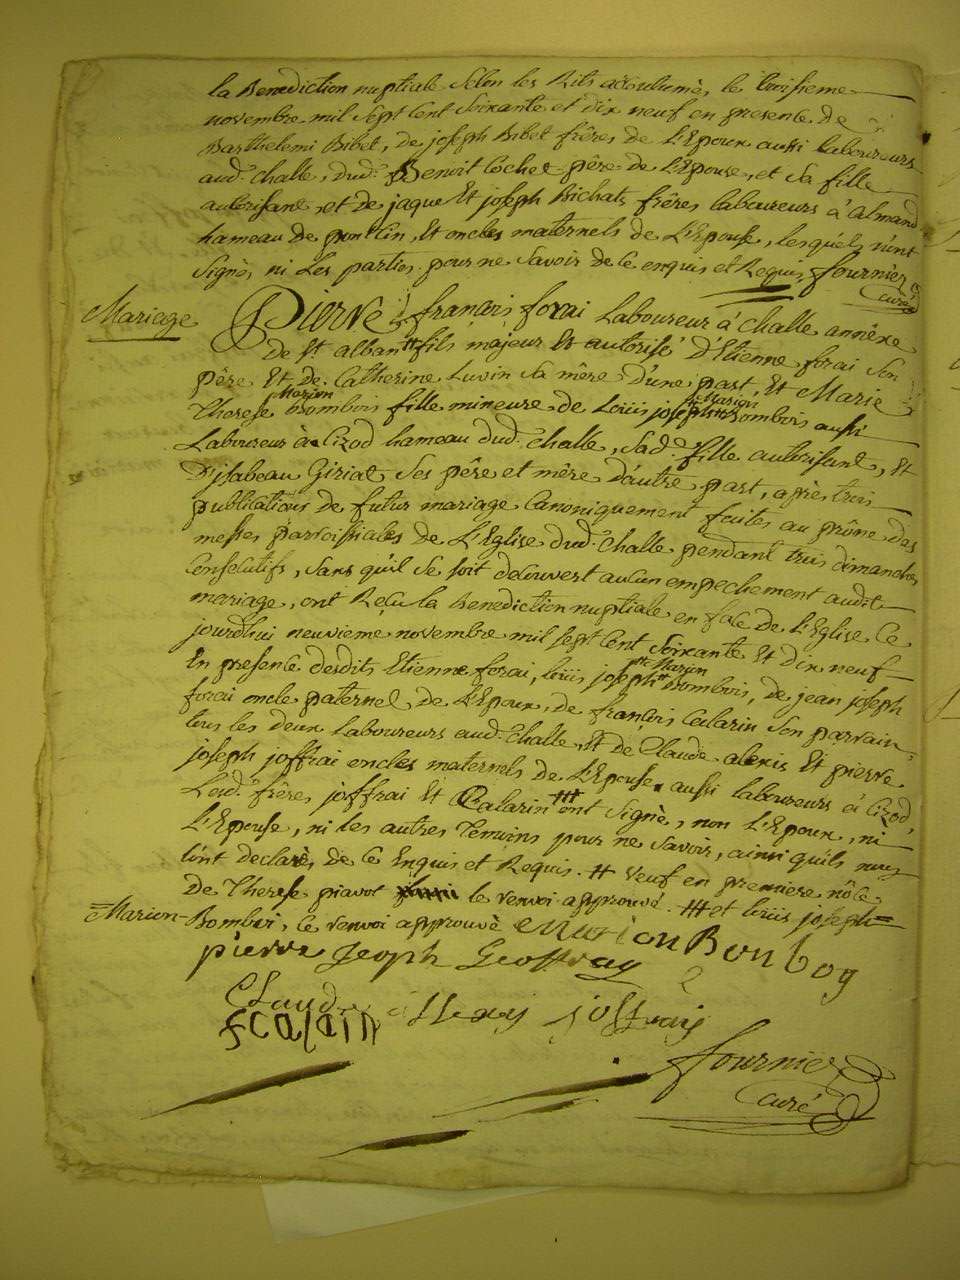 la Benediction nuptiale selon les Rits accoutumés, le troisieme
novembre mil sept cent soixante et dix neuf en presence de
Barthelemi Bibet, de joseph Bibet frêres de L'Epoux aussi laboureurs
aud. challe, dud. Benoit Cochet pêre de L'Epouse, et sa fille
autorisant, et de jaque Et joseph Bichat frêres laboureurs à
hameau de pont , Et oncles maternels de L'Epouse, lesquels n'ont
signè, ni Les parties pour ne savoir de ce enquis et Requis, fournier
Curé
Mariage
Pierre françois forai Laboureur à challe annêxe
de st. alban # fils majeur Et autorisé D'Etienne forai son
pêre Et de Catherine Luvin sa mêre D'une part, Et Marie
Marion
Marion
Therese Bombois fille mineure de Loüis joseph Bombois aussi
Laboureur à Cizod hameau dud. challe, sad. fille autorisant, Et
D'jsabeau Giriat ses pêre et mêre D'autre part, après trois
publications de futur mariage Canoniquement faites au prône des
messes parroissiales de L'Eglise dud. challe pendant trois dimanches
Consecutifs, sans qu'il se soit decouvert aucun empechement audit
mariage, ont Reçu la Benediction nuptiale en face de L'Eglise Ce
jourd'hui neuvieme novembre mil sept Cent soixante Et dix neuf
Marion
En presence desdits Etienne forai, loüis joseph Bombois, de jean joseph
forai oncle paternel de L'Epoux, de françois Calarin son parrain,
tous les deux Laboureurs aud. challe, Et de Claude alexis Et pierre
joseph joffrai oncles maternels de L'Epouse aussi laboureurs à Cizod,
Lesd. frêres joffrai Et Calarin ### ont signè, non L'Epoux, ni
L'Epouse, ni les autres Temoins pour ne savoir, ainsi qu'ils nous
l'ont declarès, de Ce Enquis et Requis. # veuf en premiere nôce
de Therese piavot le renvoi approuvé. ### et loüis joseph=
=Marion-
Bomboi, Ce renvoi approuvè Marion Bonboy
pierre Jeoph Geoffray
Claude allexis joffray
fcalarin
fournier
Curé